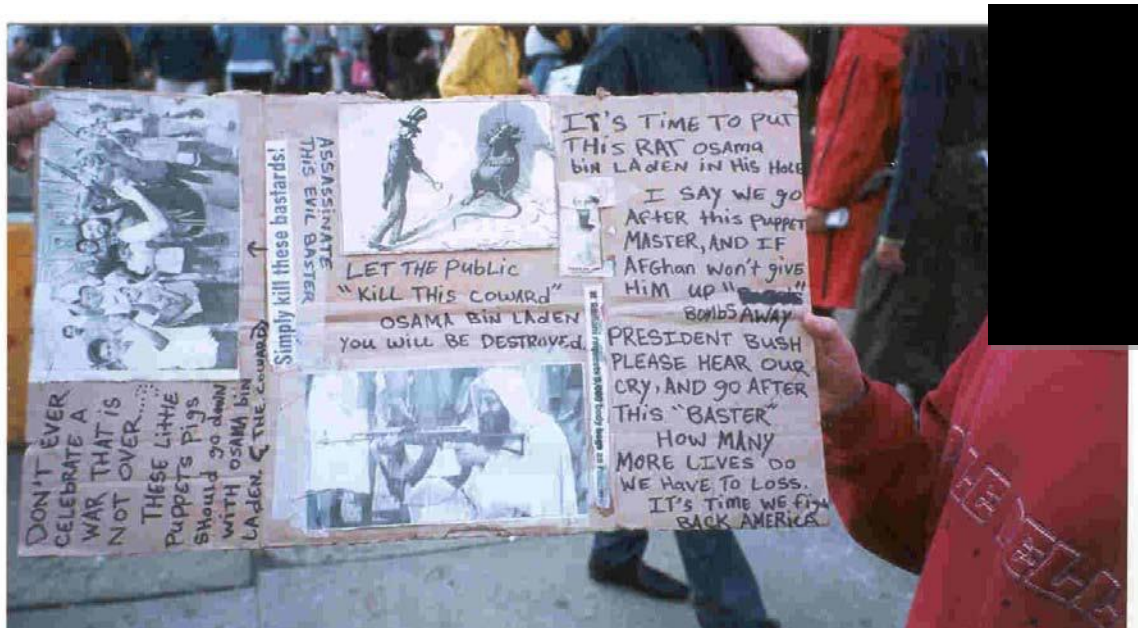 DON'T EVER
CELEBRATE A
WAR THAT IS
NOT OVER....
THESE LITTLE
PUPPETS PigS
SHould go down
WITH OSAMA bin
LAdEN. & THE COWARD
Simply kill these bastards!
ASSASSINATE
THIS EVIL BASTER
LET THE PUbLiC
"KILL THIS COWARd"
OSAMA BIN LAdEN
YOU WILL BE DESTROYEd.
IT'S TIME TO PUT
THIS RAT OSAma
biN LAdEN IN HIS HOLE
I SAY WE go
AFTER this PUPPET
MASTER, AND IF
AFGhan won't give
HIM UP "
BOMbS AWAY
PRESIDENT BUSH
PLEASE HEAR OUR
CRY, AND gO AFTER
THIS "BASTER"
HOW MANY
MORE LIVES DO
WE HAVE TO LOSS.
IT'S TIME WE
BACK AMERICA